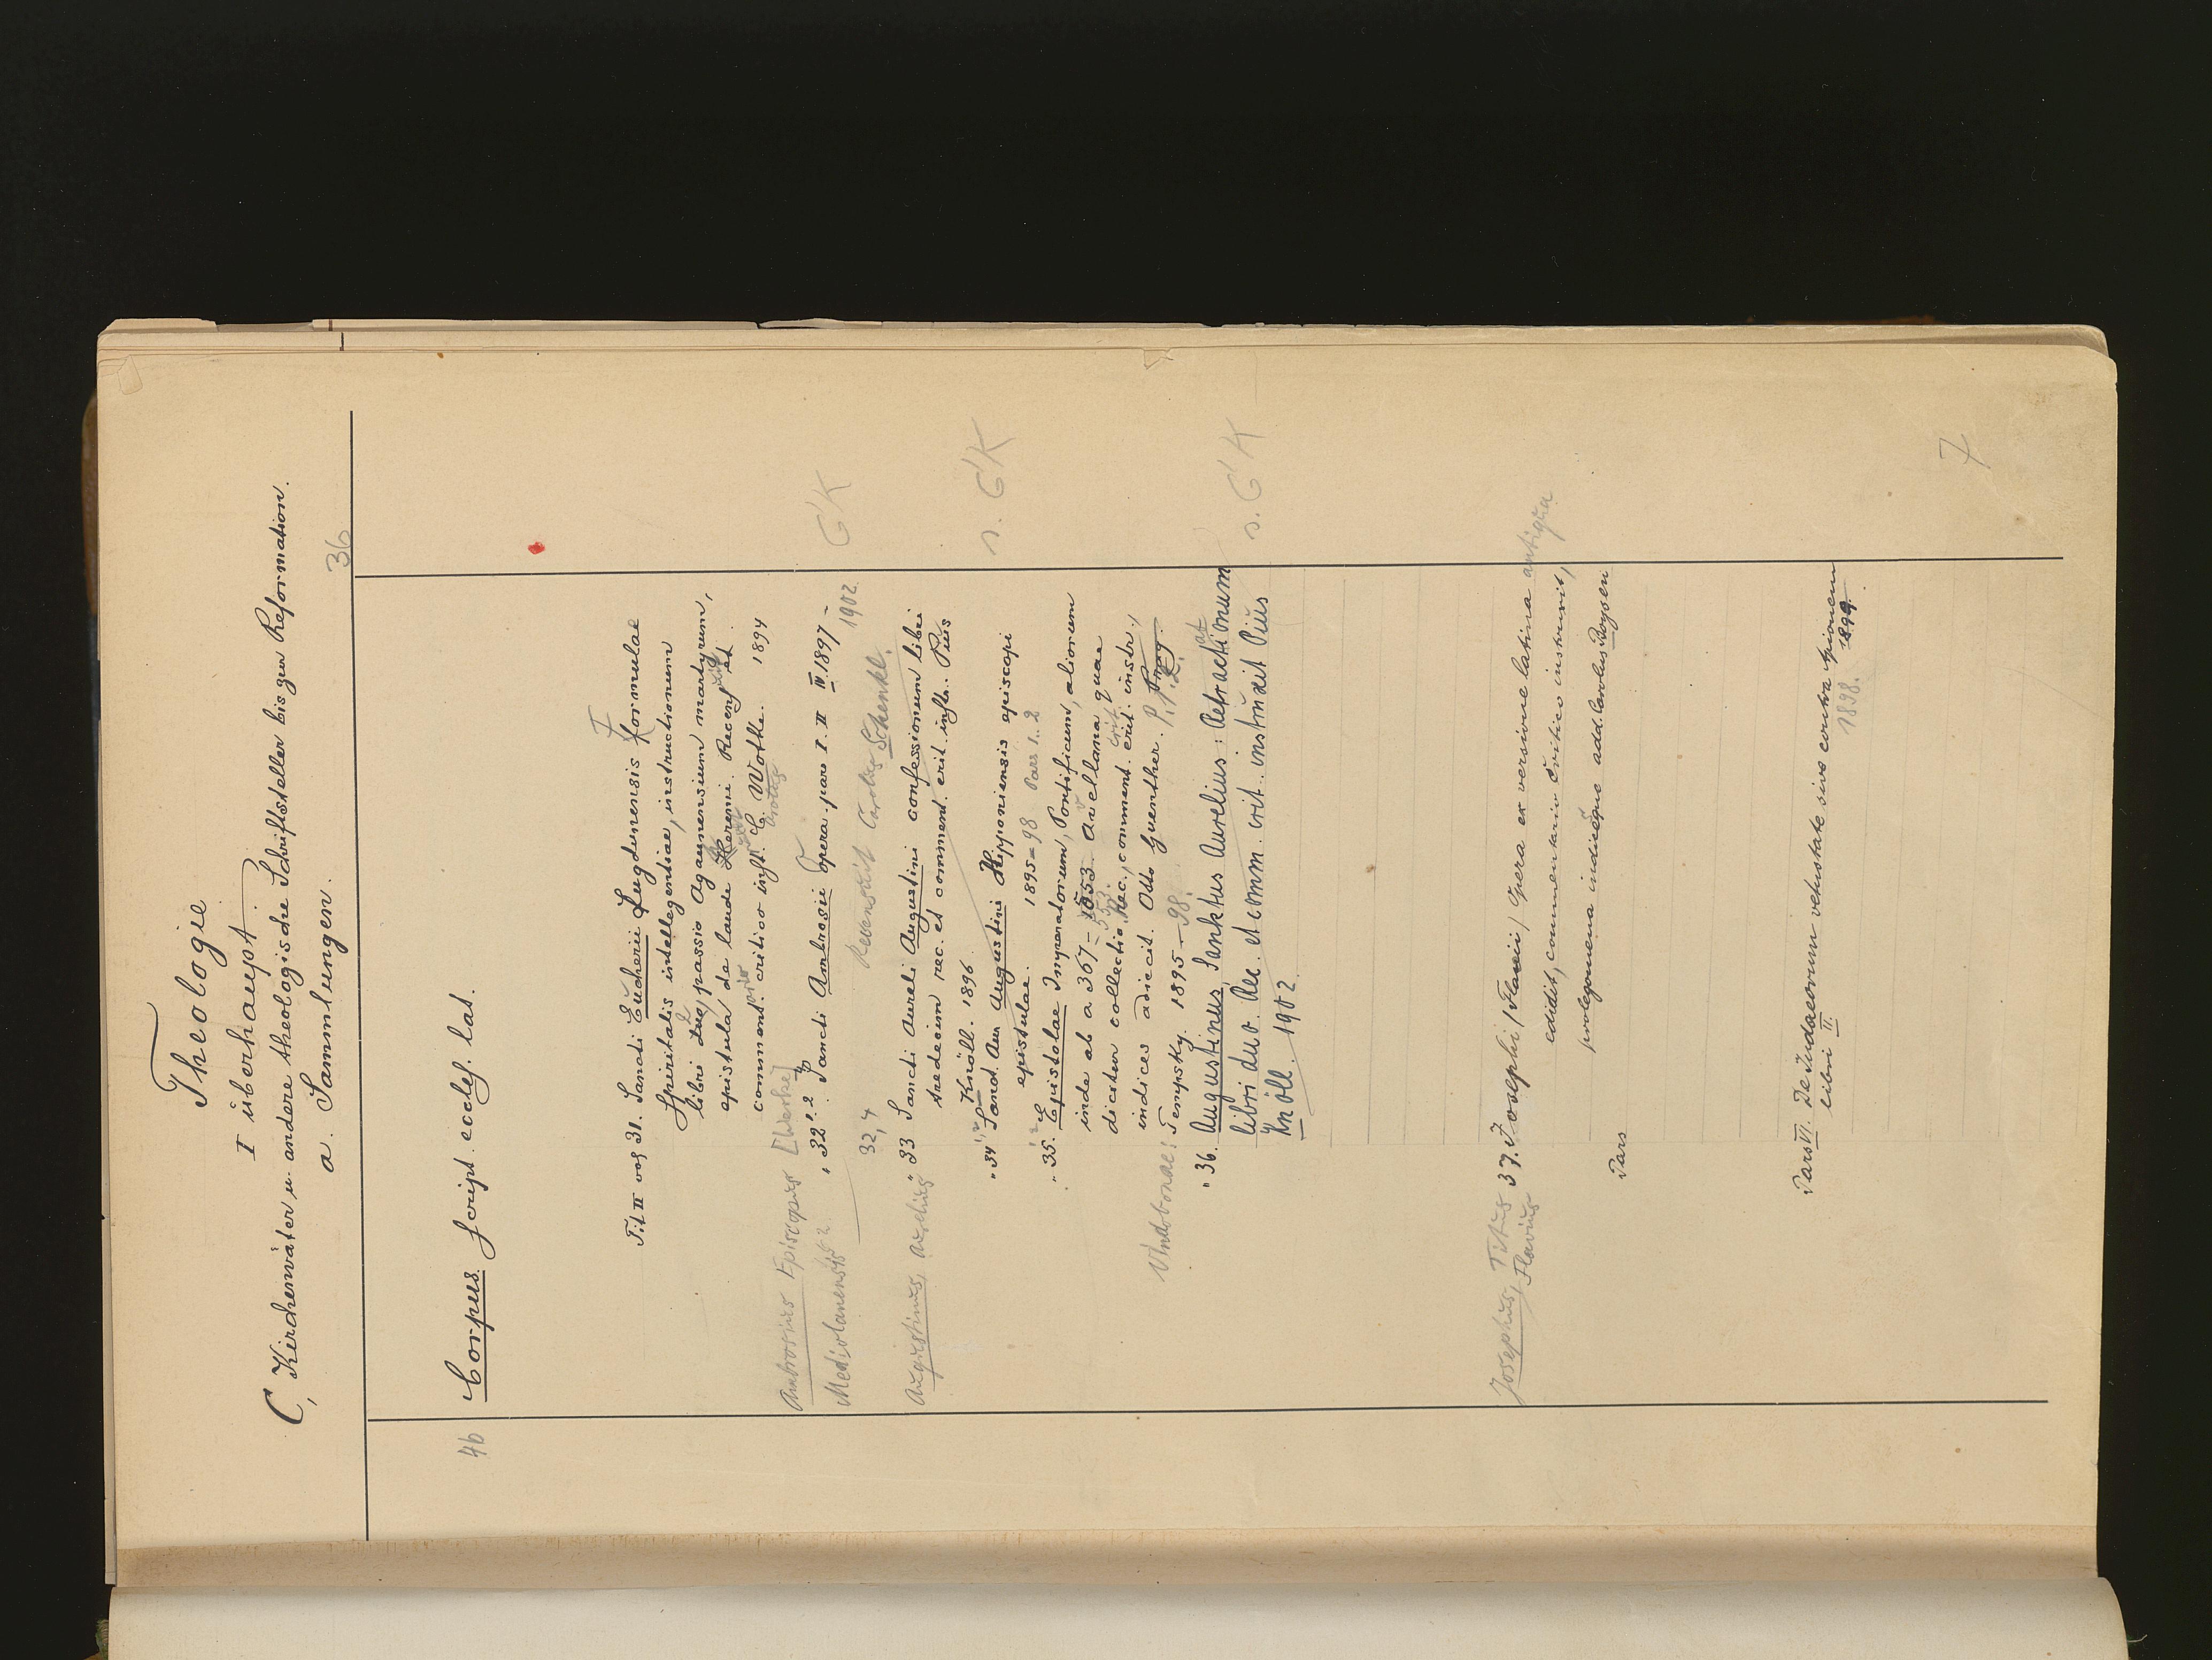 Theologie
I überhaupt
C, Kirchenväter u. andere theologische Schriftsteller bis zur Reformation.
a. Sammlungen.
36
46 Corpus script. eccles. lat.
31. Sancti Eucherii Lugdunensis Formulae
Spiritalis intellegentiae, instructionum
libri duo, passio Agaunensium martyrum,
epistula de laude Heremi. Recens. et
comment. critico inst. C. Wotke. 1894
Ambrosius Episcopus [Werke]
" 32 1. 2 Sancti Ambrosii Opera. pars I. II IV 1897-
Mediolanensis
1902
32,4 Recensuit Carolus Schenkl.
Augustinus, Aurelius
" 33 Sancti Aureli Augustini confessionum libri
tredecim rec. et comment. crit. instr. Pius
Knöll. 1896.
" 34 1,2 Sanct. Aur Augustini Hipponiensis episcopi
epistulae. 1895-98 Pars 1. 2
s. G'K
" 35. Epistolae Imperatorum, Pontificum, aliorum
inde ab a 367-553 Avellana quae
dicitur collectio. Rec., comment. crit. instr.,
indices adiecit. Otto Guenther. P. 1. 2.
Vindobonae: Tempsky. 1895-98.
" 36. Augustinus, Sanktus Aurelius: Retractationum
libri duo. Rec. et comm. crit. instruxit Pius
Knöll. 1902.
s. G'K
Josephus, Titus Flavius
37. Josephi (Flavii) Opera ex versione latina antiqua
edidit, commentario critico instruxit,
prolegomena indicesque add. Carolus Boysen
Pars
Pars VI. De Judaeorum vetustate sive contra Apionem
libri II. 1898.
7